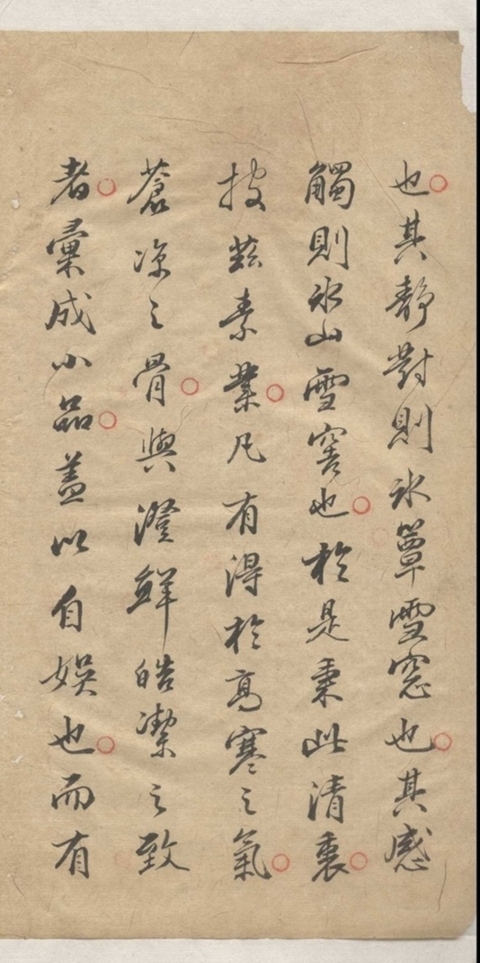 也其靜對則氷簟雪窓也其感
觸則氷山雪窖也於是秉此清衷
披茲素業凡有得於高寒之氣
蒼涼之骨與澄鮮皓潔之致
者彙成小品蓋以自娛也而有